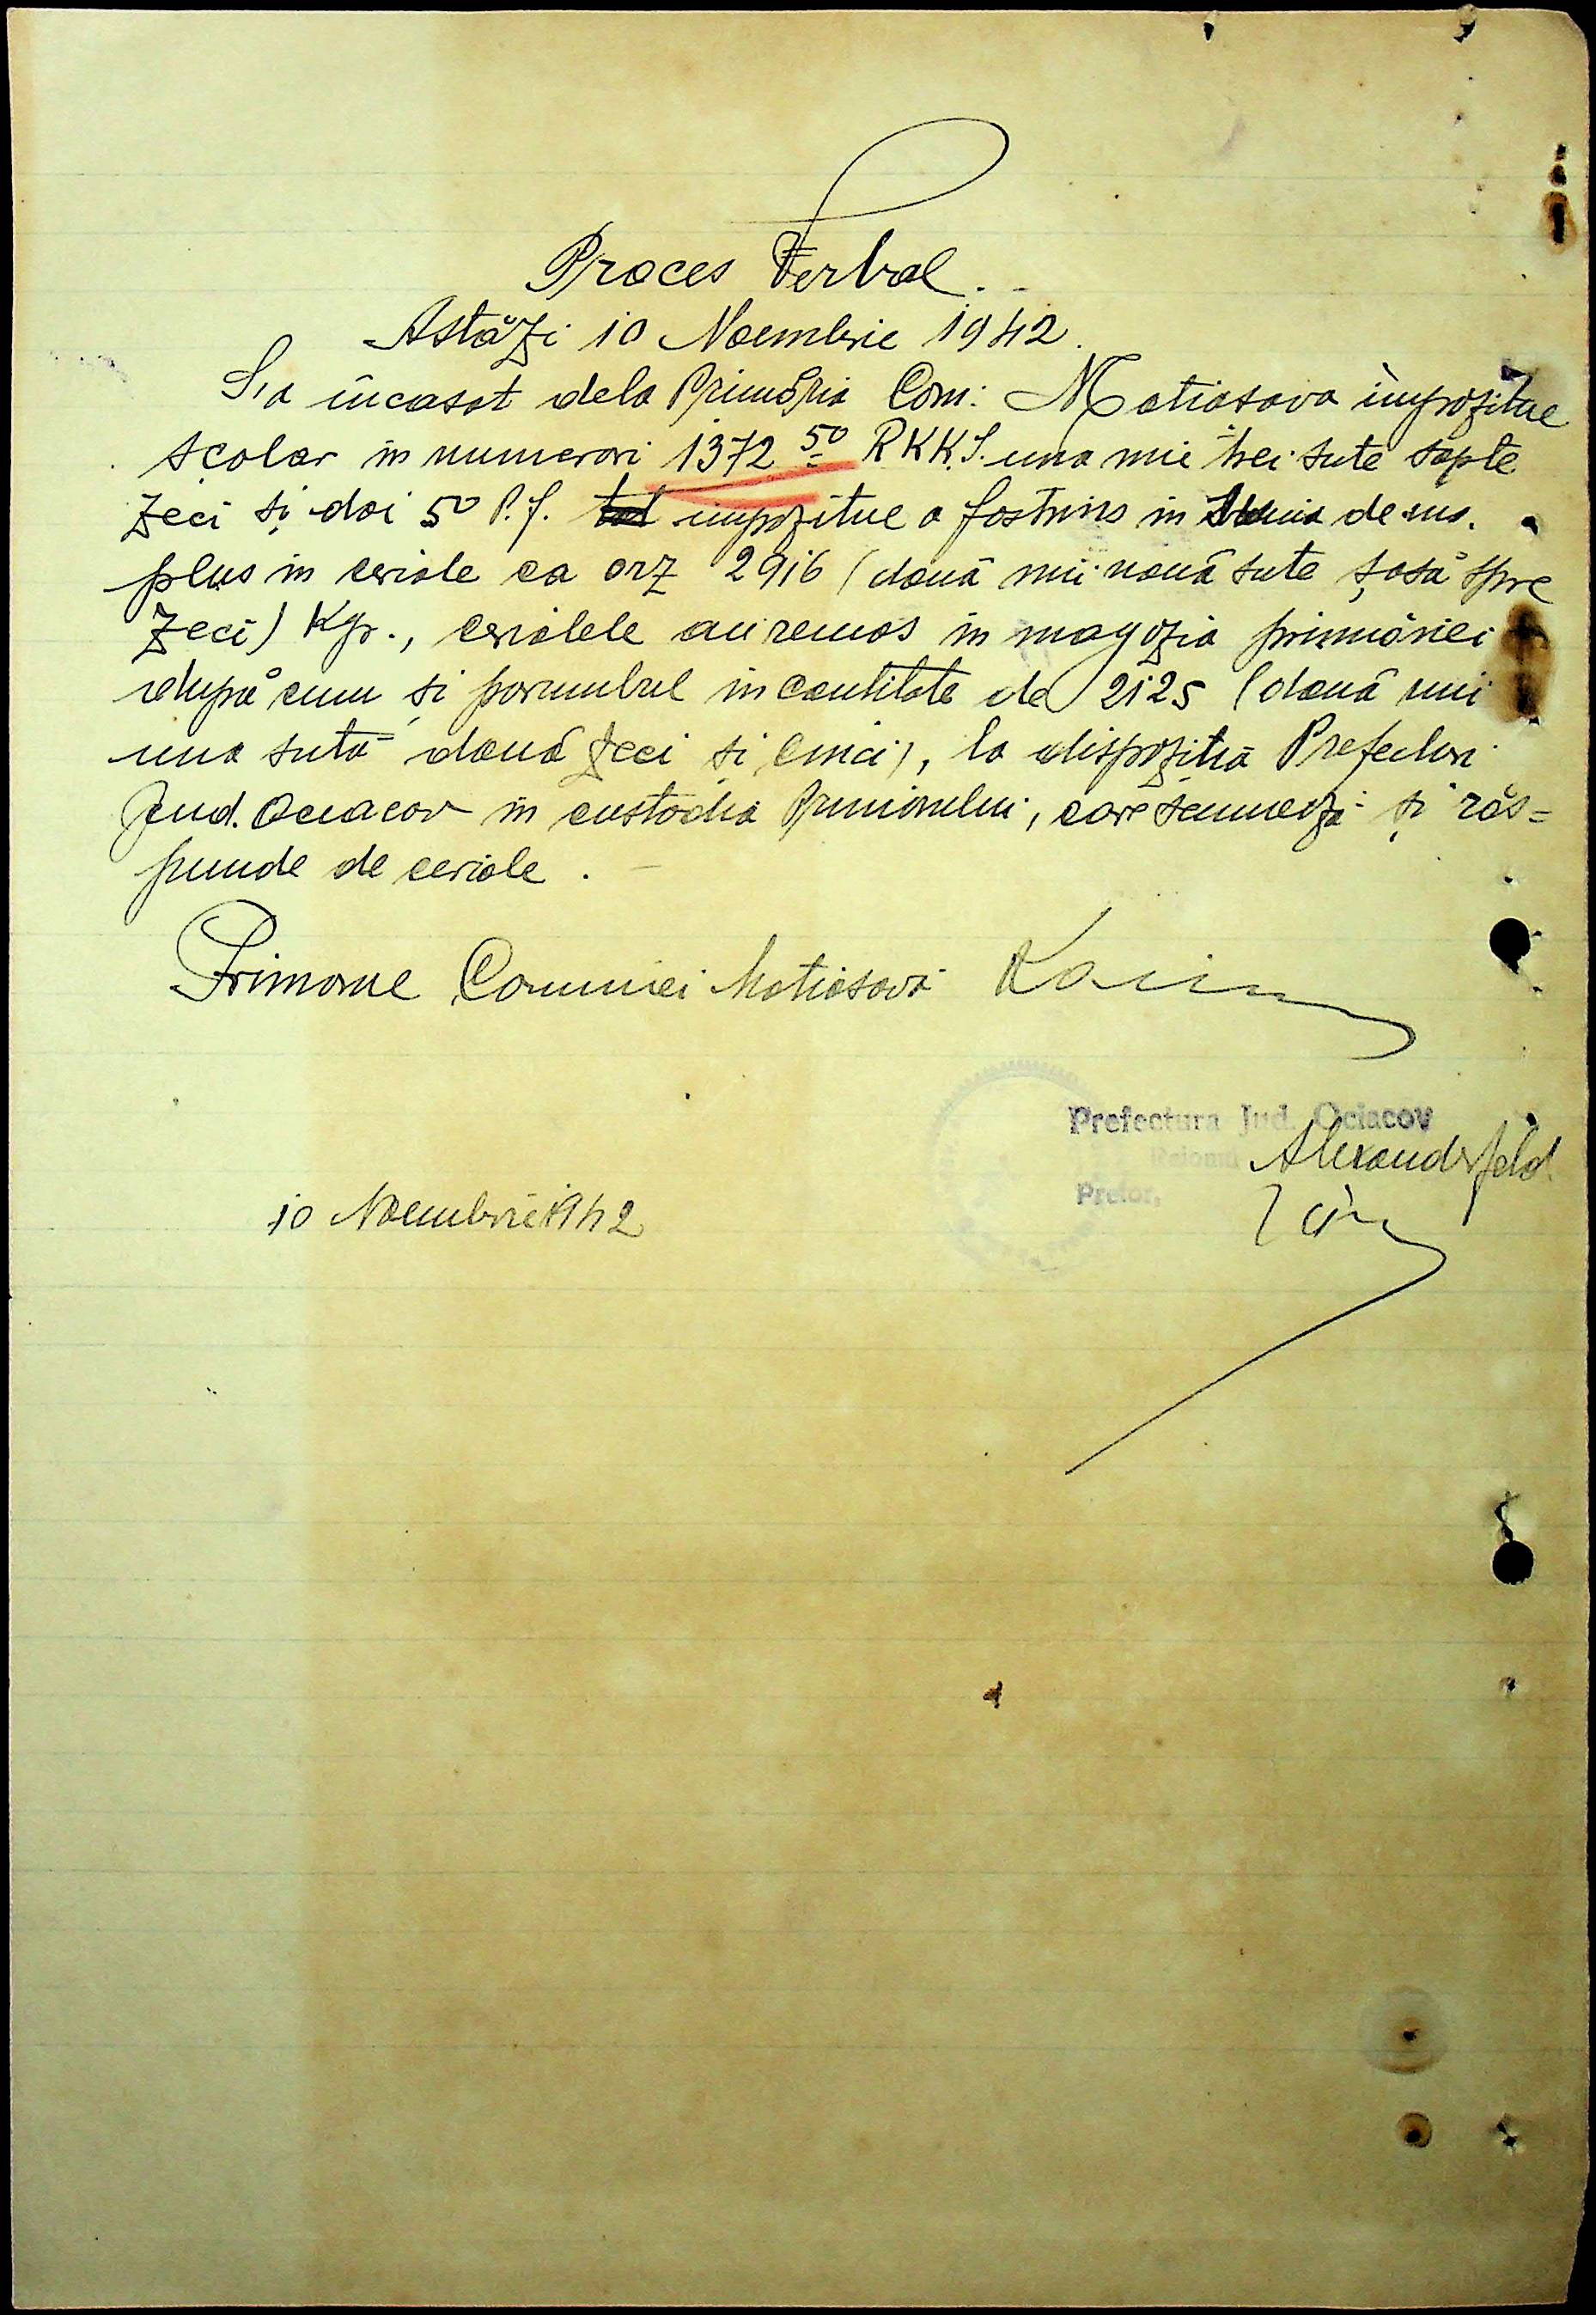 Proces Verbal.
Astăzi 10 Noembrie 1942.
S'a incasat dela Primăria Com. Matiasava impozitue
școlar in numerori 1372 50 RKKS. una mie trei sute șapte
zeci și doi 50 P.f. impozitue a fost trins in de sus.
plus in ceriale ca orz 2916 (două mii nouă sute șasă spre
zeci) Kgr., cerialele au remas in magazia primăriei
după cum și porumbul in cantitate de 2125 (două mii
una sută două zeci si cinci), la dispoziția Prefecturi
Jud. Oceacov in custodia Primarului, care semnează și răs=
punde de ceriale.
Primarue Comunei Matiasava
Prefectura Jud. Ociacov
Raionul Alexanderfeld.
Pretor,
10 Noembrie 1942